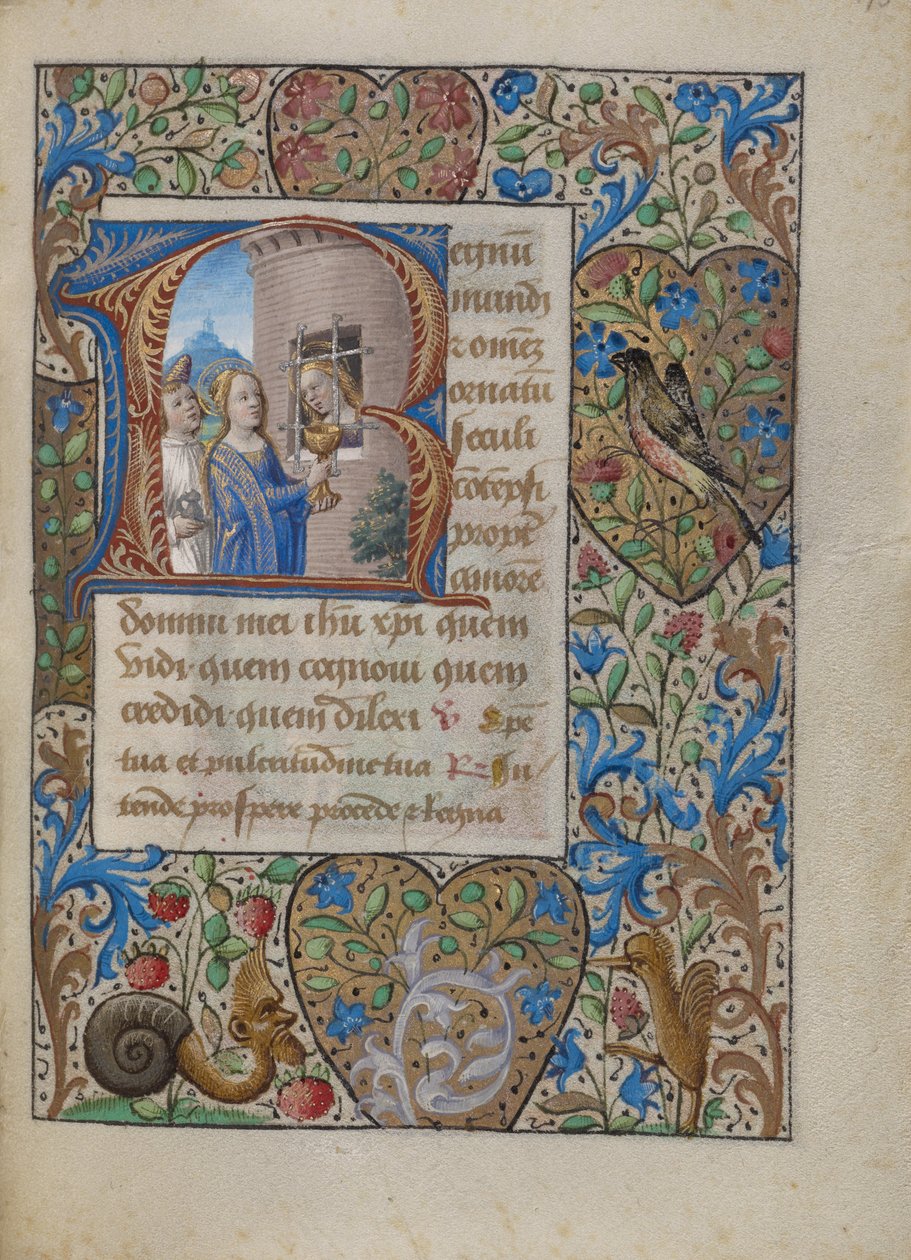 Regnū
mundi
⁊ omēz
ornatū
seculi
cōtēpsi
propt̄
amorē
domini mei ihū xp̄i quem
vidi· quem cognoui quem
credidi· quem dilexi V̄ Spē
tua et pulcritudīne tua R̄ Jn
tende prospere procede ⁊ regna